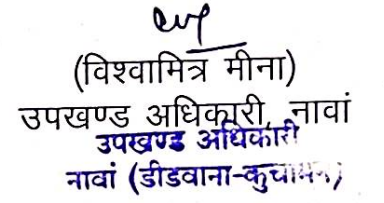 (विश्वामित्र मीना)
उपखण्ड अधिकारी, नावां
उपखण्ड अधिकारी
नावां (डीडवाना-कुचामन)